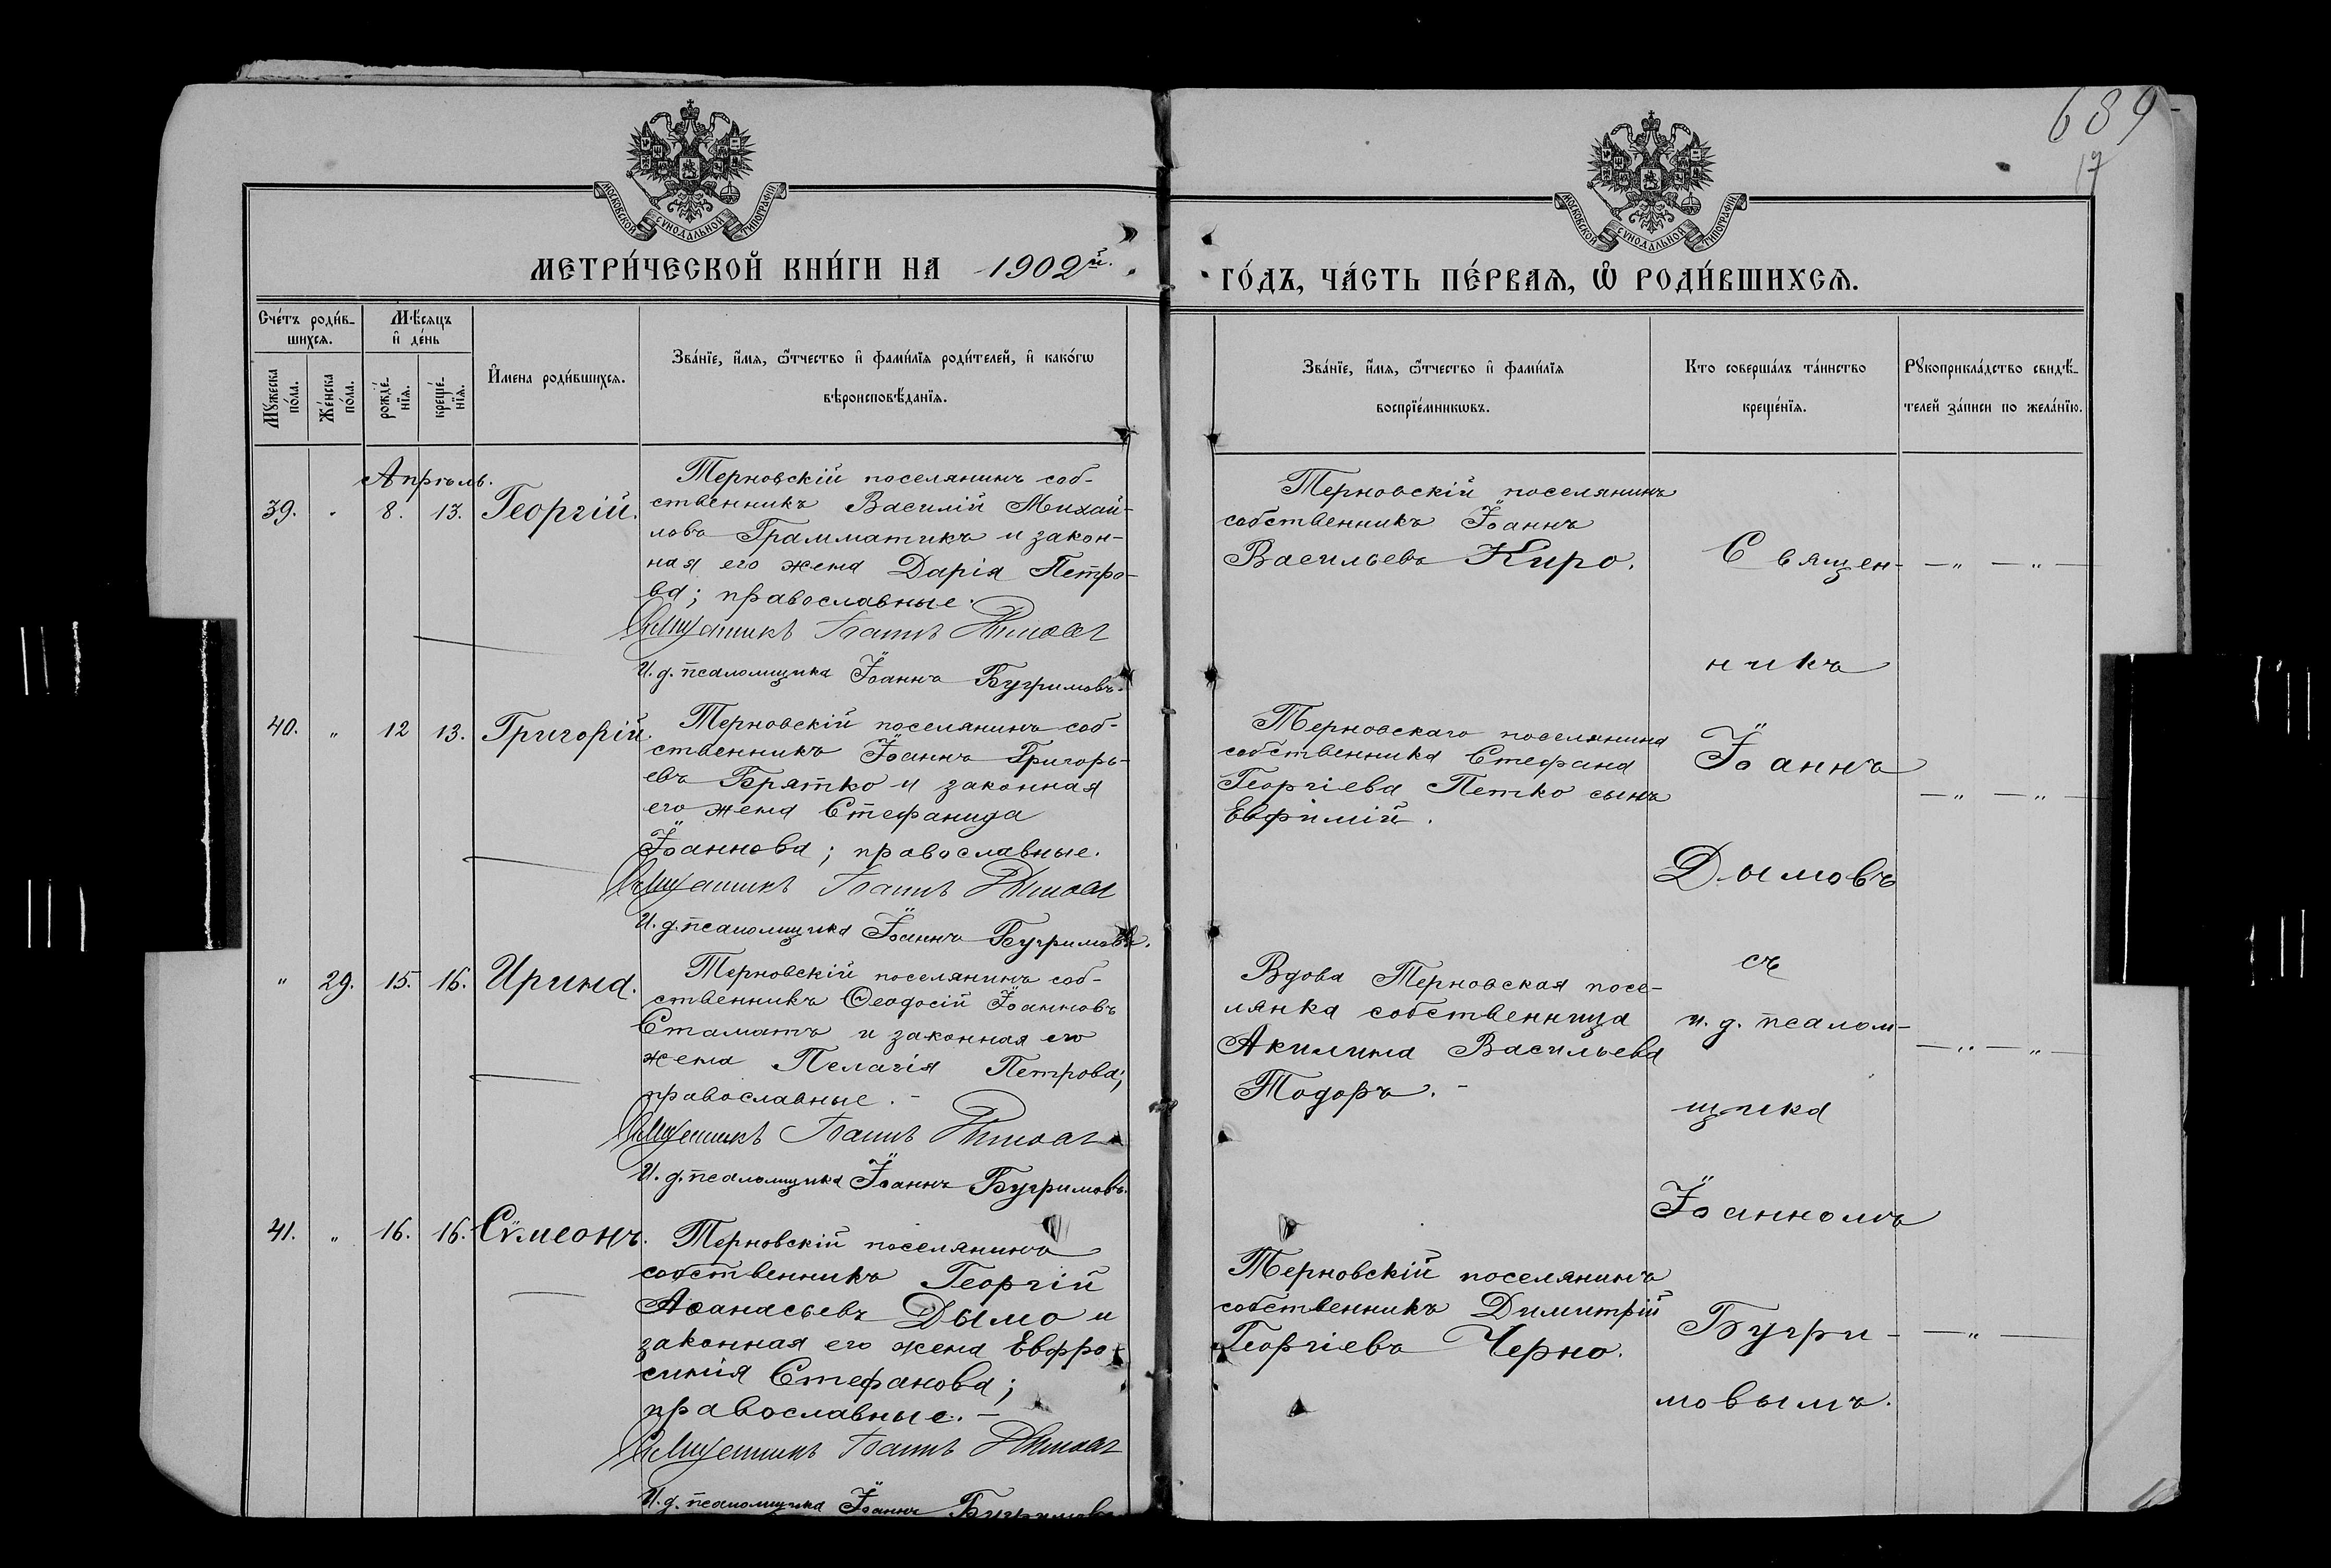 689
17
МОСКОВСКОЙ СѴНОДАЛЬНОЙ ТИПОГРАФІИ
МОСКОВСКОЙ СѴНОДАЛЬНОЙ ТИПОГРАФІИ
МЕТРИ́ЧЕСКОЙ КНИ́ГИ НА 1902й.
ГО́ДЪ, ЧА́СТЬ ПЕ́РВАѦ, Ѽ РОДИ́ВШИХСѦ.
Сче́тъ роди́в-
шихсѧ.
Мѣ́сяцъ
и҆ де́нь
Мꙋ́жеска
по́ла.
Же́нска
по́ла.
рожде́-
нїѧ.
креще́-
нїѧ.
И҆мена роди́вшихсѧ.
Зва́нїе, и҆́мѧ, ѻ҆́тчество и҆ фами́лїѧ роди́телей, и҆ како́гѡ
вѣроисповѣ́данїѧ.
Зва́нїе, и҆́мѧ, ѻ҆́тчество и҆ фами́лїѧ
воспрїе́мникѡвъ.
Кто соверша́лъ та́инство
креще́нїѧ.
Рꙋкоприкла́дство свидѣ́-
телей за́писи по жела́нїю.
Апрѣль.
39. " 8. 13. Георгій.
Терновскій поселянинъ соб-
ственникъ Василій Михай-
ловъ Грамматикъ и закон-
ная его жена Дарія Петро-
ва; православные.
Священникъ Іоаннъ Дымовъ
И. д. псаломщика Іоаннъ Бугримовъ.
Терновскій поселянинъ
собственникъ Іоаннъ
Васильевъ Киро.
40. " 12 13. Григорій.
Терновскій поселянинъ соб-
ственникъ Іоаннъ Григорь-
евъ Брятко и законная
его жена Стефанида
Іоаннова; православные.
Священникъ Іоаннъ Дымовъ
И. д. псаломщика Іоаннъ Бугримовъ.
Терновскаго поселянина
собственника Стефана
Георгіева Петко сынъ
Евфимій.
" 29. 15. 16. Ирина.
Терновскій поселянинъ соб-
ственникъ Ѳеодосій Іоанновъ
Стаматъ и законная его
жена Пелагія Петрова;
православные. -
Священникъ Іоаннъ Дымовъ
И. д. псаломщика Іоаннъ Бугримовъ.
Вдова Терновская посе-
лянка собственница
Акилина Васильева
Тодоръ. -
41. " 16. 16. Сѵмеонъ.
Терновскій поселянинъ
собственникъ Георгій
Аѳанасьевъ Дымо и
законная его жена Евфро-
синія Стефанова;
православные. -
Священникъ Іоаннъ Дымовъ
И. д. псаломщика Іоаннъ Бугримовъ
Терновскій поселянинъ
собственникъ Димитрій
Георгіевъ Черно.
Священ-
никъ
Іоаннъ
Дымовъ
съ
и. д. псалом-
щика
Іоанномъ
Бугри-
мовымъ.